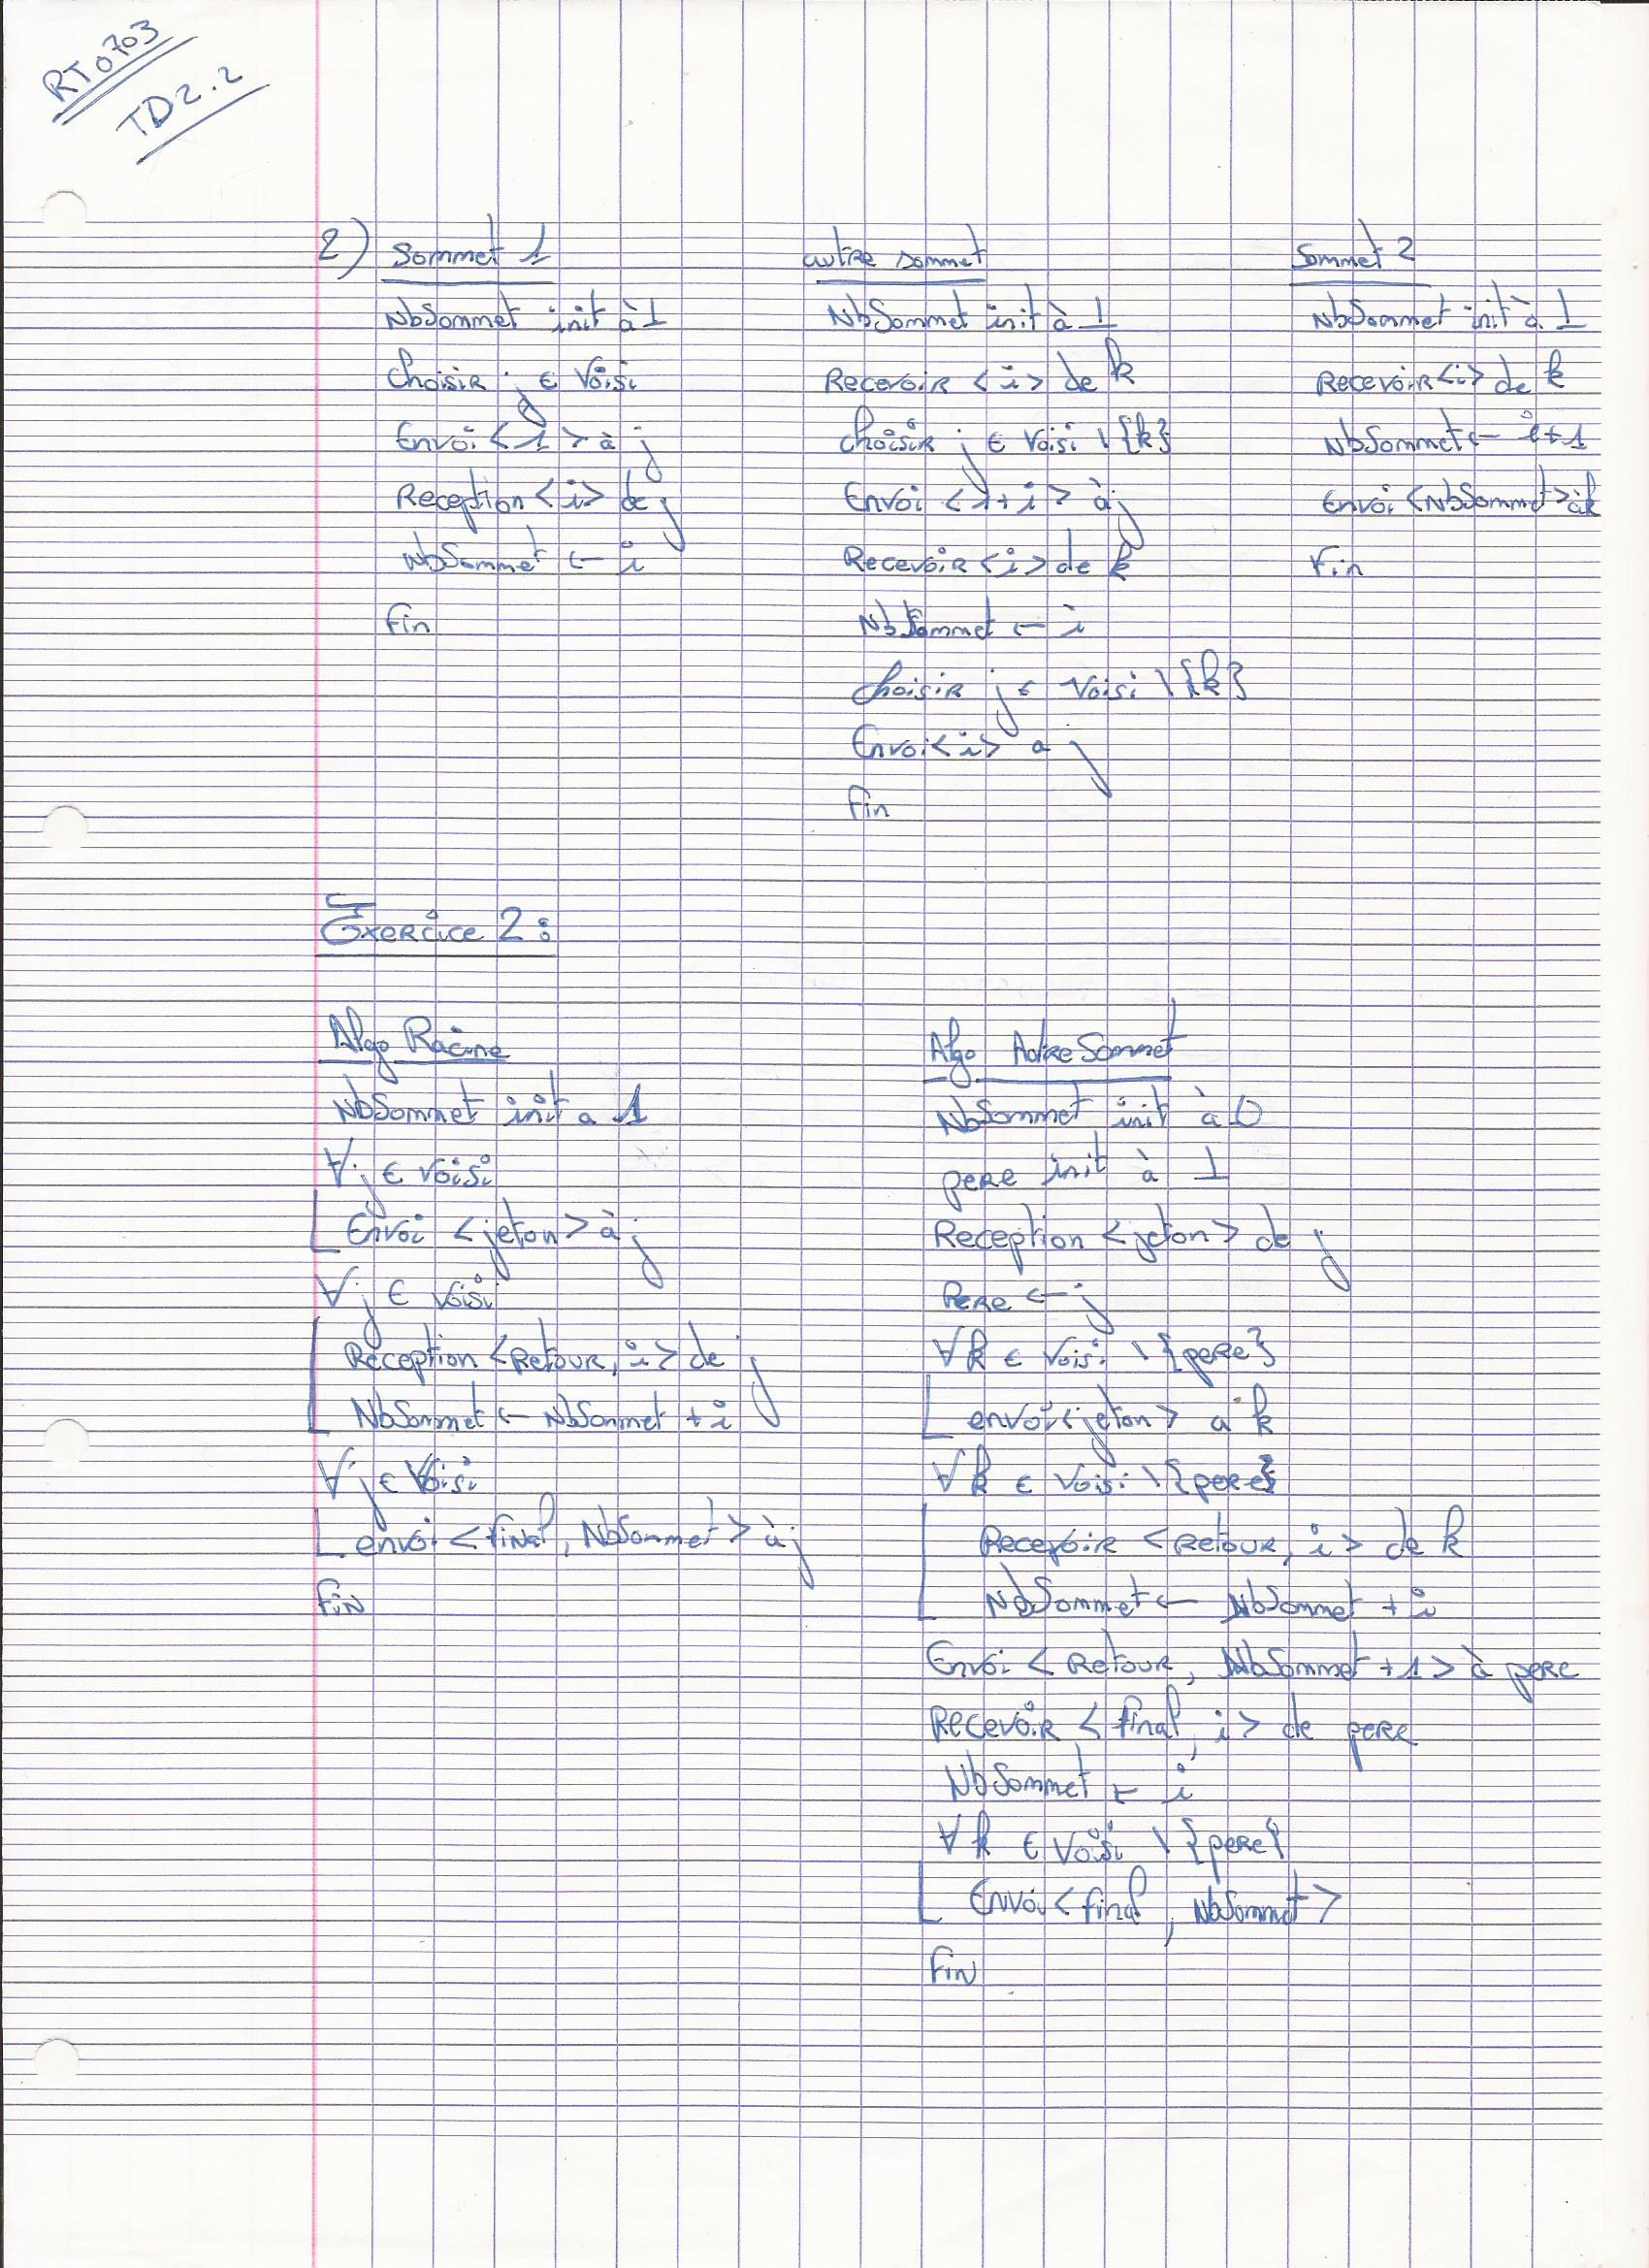 RT0703
TD2.2
2) Sommet 1
NbSommet init à ⊥
Choisir j ∈ Voisi
Envoi <1> à j
Reception <i> de j
NbSommet ← i
Fin
autre sommet
NbSommet init à ⊥
Recevoir <i> de k
choisir j ∈ Voisi \ {k}
Envoi <1+i> à j
Recevoir <i> de k
NbSommet ← i
choisir j ∈ Voisi \ {k}
Envoi <i> a j
Fin
Sommet 2
NbSommet init à ⊥
Recevoir <i> de k
NbSommet ← i+1
Envoi <NbSommet> à k
Fin
Exercice 2 :
Algo Racine
NbSommet init a 1
∀ j ∈ Voisi
Envoi <jeton> à j
∀ j ∈ Voisi
Reception <Retour, i> de j
NbSommet ← NbSommet + i
∀ j ∈ Voisi
envoi <final, NbSommet> à j
Fin
Algo AutreSommet
NbSommet init à 0
pere init à ⊥
Reception <jeton> de j
Pere ← j
∀ k ∈ Voisi \ {pere}
envoi <jeton> a k
∀ k ∈ Voisi \ {pere}
Recevoir <Retour, i> de k
NbSommet ← NbSommet + i
Envoi <Retour, NbSommet +1> à pere
Recevoir <final, i> de pere
NbSommet ← i
∀ k ∈ Voisi \ {pere}
Envoi <final, NbSommet>
Fin